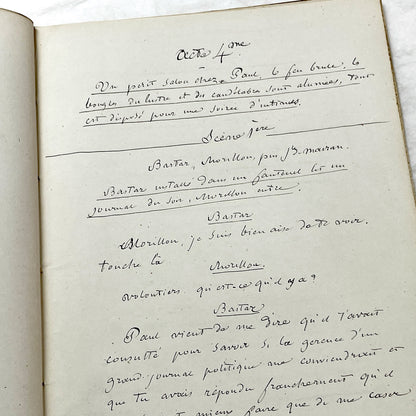 Acte 4me
Un petit salon chez Paul, le feu brule, les
bougies du lustre et des candélabres sont allumées, tout
est disposé pour une soirée d'intimes.
Scène 1ère
Bastar, Morillon, puis
Bastar installé dans un fauteuil lit un
journal du soir, Morillon entre.
Bastar
Morillon, je suis bien aise de te voir.
touche là
Morillon.
volontiers qu'est-ce qu'il y a?
Bastar
Paul vient de me dire qu'il t'avait
consulté pour savoir si la gérence d'un
grand journal politique me conviendrait et
que tu avais répondu franchement qu'il
mieux faire que de me caser